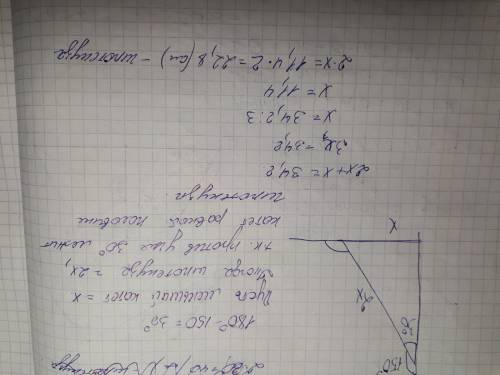 180 - 150 = 30°
Пусть меньший катет = x
Тогда гипотенуза = 2x,
т.к. против угла 30° лежит
катет равный половине
гипотенузы
2x + x = 34,2
3x = 34,2
x = 34,2 : 3
x = 11,4
2·x = 11,4 · 2 = 22,8 (см) - гипотенуза
150°
30°
2x
x